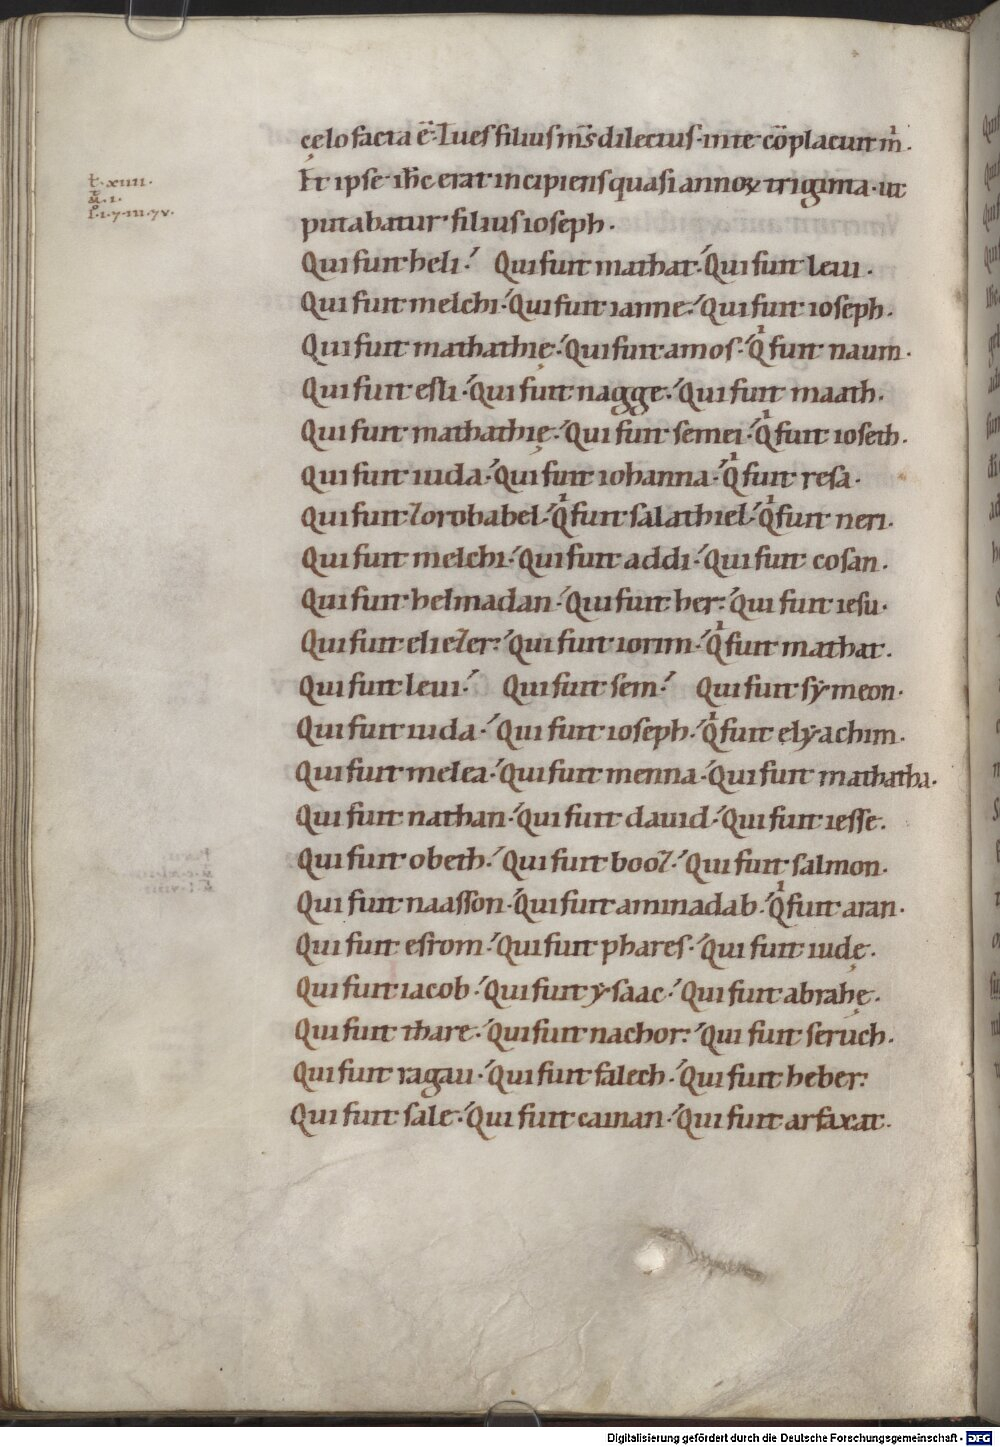 cęlo facta ē· Tu es filius m̄s dilectus· in te cōplacuit m̄·
Et ipse ih̄c erat incipiens quasi annoꝝ triginta· ut
putabatur· filius ioseph·
Qui fuit heli· Qui fuit mathat· Qui fuit leui·
Qui fuit melchi· Qui fuit ianne· Qui fuit ioseph·
Qui fuit mathathię· Qui fuit amos· Q fuit naum·
Qui fuit esli· Qui fuit nagge· Qui fuit maath·
Qui fuit mathathię· Qui fuit semei· Q fuit ioseth·
Qui fuit iuda· Qui fuit iohanna· Q fuit resa·
Qui fuit zorobabel· Q fuit salathiel· Q fuit neri·
Qui fuit melchi· Qui fuit addi· Qui fuit cosan·
Qui fuit helmadan· Qui fuit her· Qui fuit iesu·
Qui fuit eliezer· Qui fuit iorim· Q fuit mathat·
Qui fuit leui· Qui fuit sem· Qui fuit symeon·
Qui fuit iuda· Qui fuit ioseph· Q fuit elyachim·
Qui fuit melea· Qui fuit menna· Qui fuit mathatha·
Qui fuit nathan· Qui fuit dauid· Qui fuit iesse·
Qui fuit obeth· Qui fuit booz· Qui fuit salmon·
Qui fuit naasson· Qui fuit aminadab· Q fuit aran·
Qui fuit esrom· Qui fuit phares· Qui fuit iudę·
Qui fuit iacob· Qui fuit ysaac· Qui fuit abrahę·
Qui fuit thare· Qui fuit nachor· Qui fuit seruch·
Qui fuit ragau· Qui fuit falech· Qui fuit heber·
Qui fuit sale· Qui fuit cainan· Qui fuit arfaxat·
t· xiiii·
M· i·
l· i· 7· iii· 7 v·
Digitalisierung gefördert durch die Deutsche Forschungsgemeinschaft - DFG